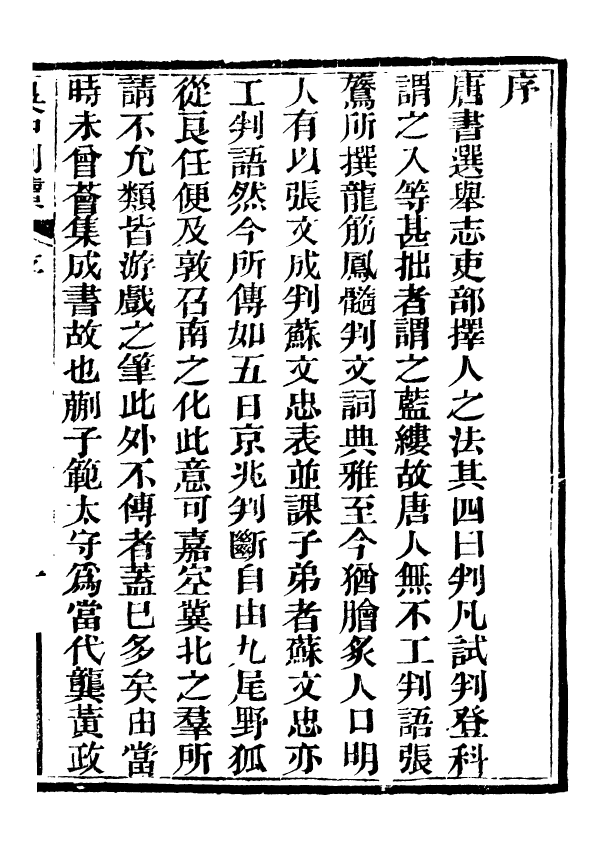 序
唐書選舉志吏部擇人之法其四曰判凡試判登科
謂之入等甚拙者謂之藍縷故唐人無不工判語張
鷟所撰龍筋鳳髓判文詞典雅至今猶膾炙人口明
人有以張文成判蘇文忠表並課子弟者蘇文忠亦
工判語然今所傳如五日京兆判斷自由九尾野狐
從良任便及敦召南之化此意可嘉空冀北之羣所
請不允類皆游戲之筆此外不傳者蓋已多矣由當
時未曾薈集成書故也蒯子範太守爲當代龔黃政
吳中判牘
序
一